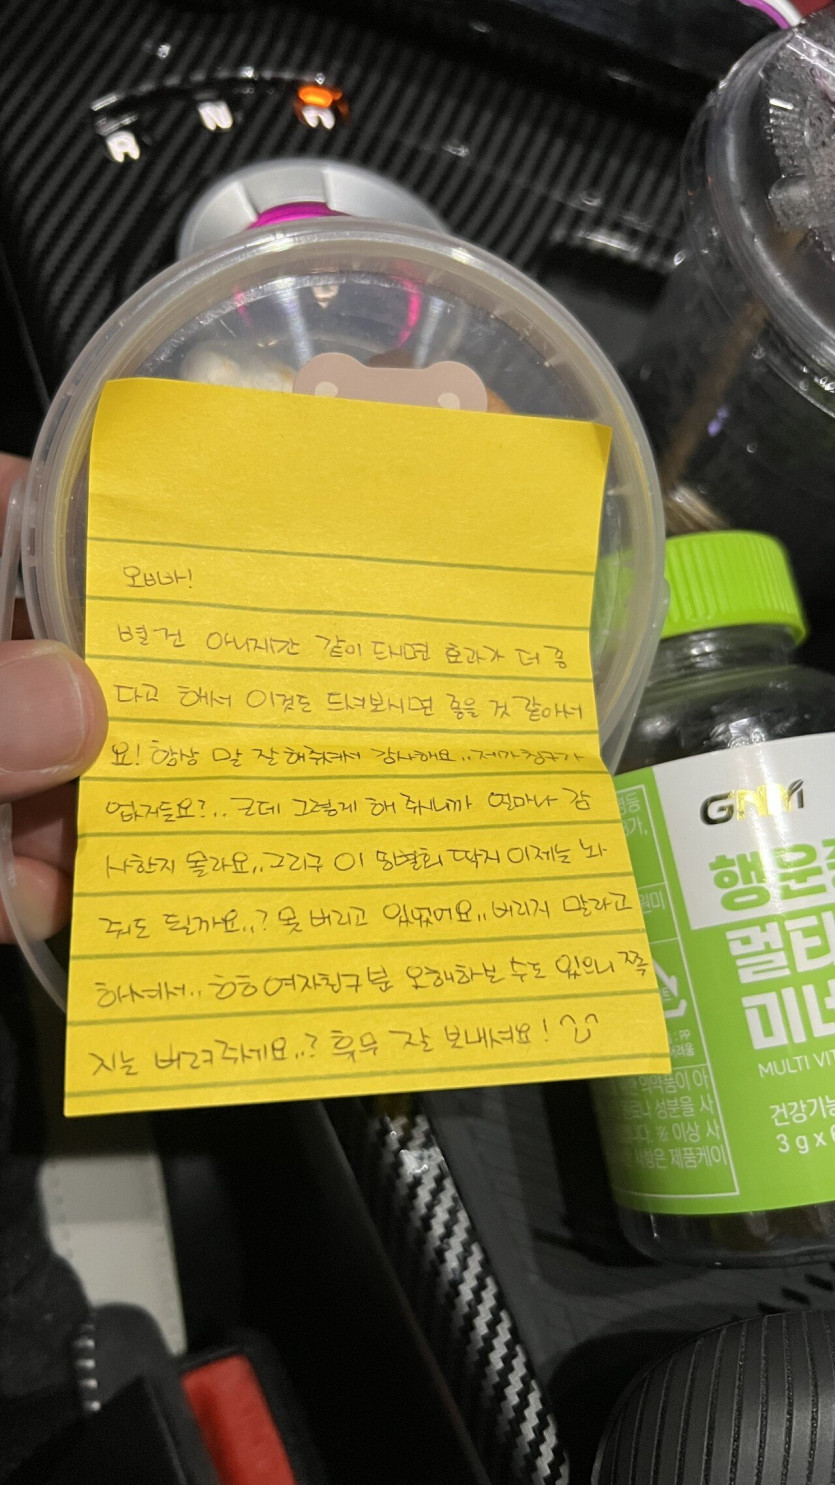 R
N
오빠!
별건 아니지만 같이 드시면 효과가 더 좋
다고 해서 이것도 드셔보시면 좋을 것 같아서
요! 항상 말 잘 해주셔서 감사해요.. 제가 친구가
없거든요?.. 근데 그렇게 해 주시니까 얼마나 감
사한지 몰라요.. 그리구 이 특별회 딱지 이제는 놔
줘도 될까요..? 못 버리고 있었어요.. 버리지 말라고
하셔서.. 흐흐 여자친구분 오해하실 수도 있으니 쪽
지는 버려주세요..? 휴무 잘 보내셔요!
GNM
행운
멀티
미네
MULTI VIT
건강기능
3 g x 6
이상 사
은 제품케이